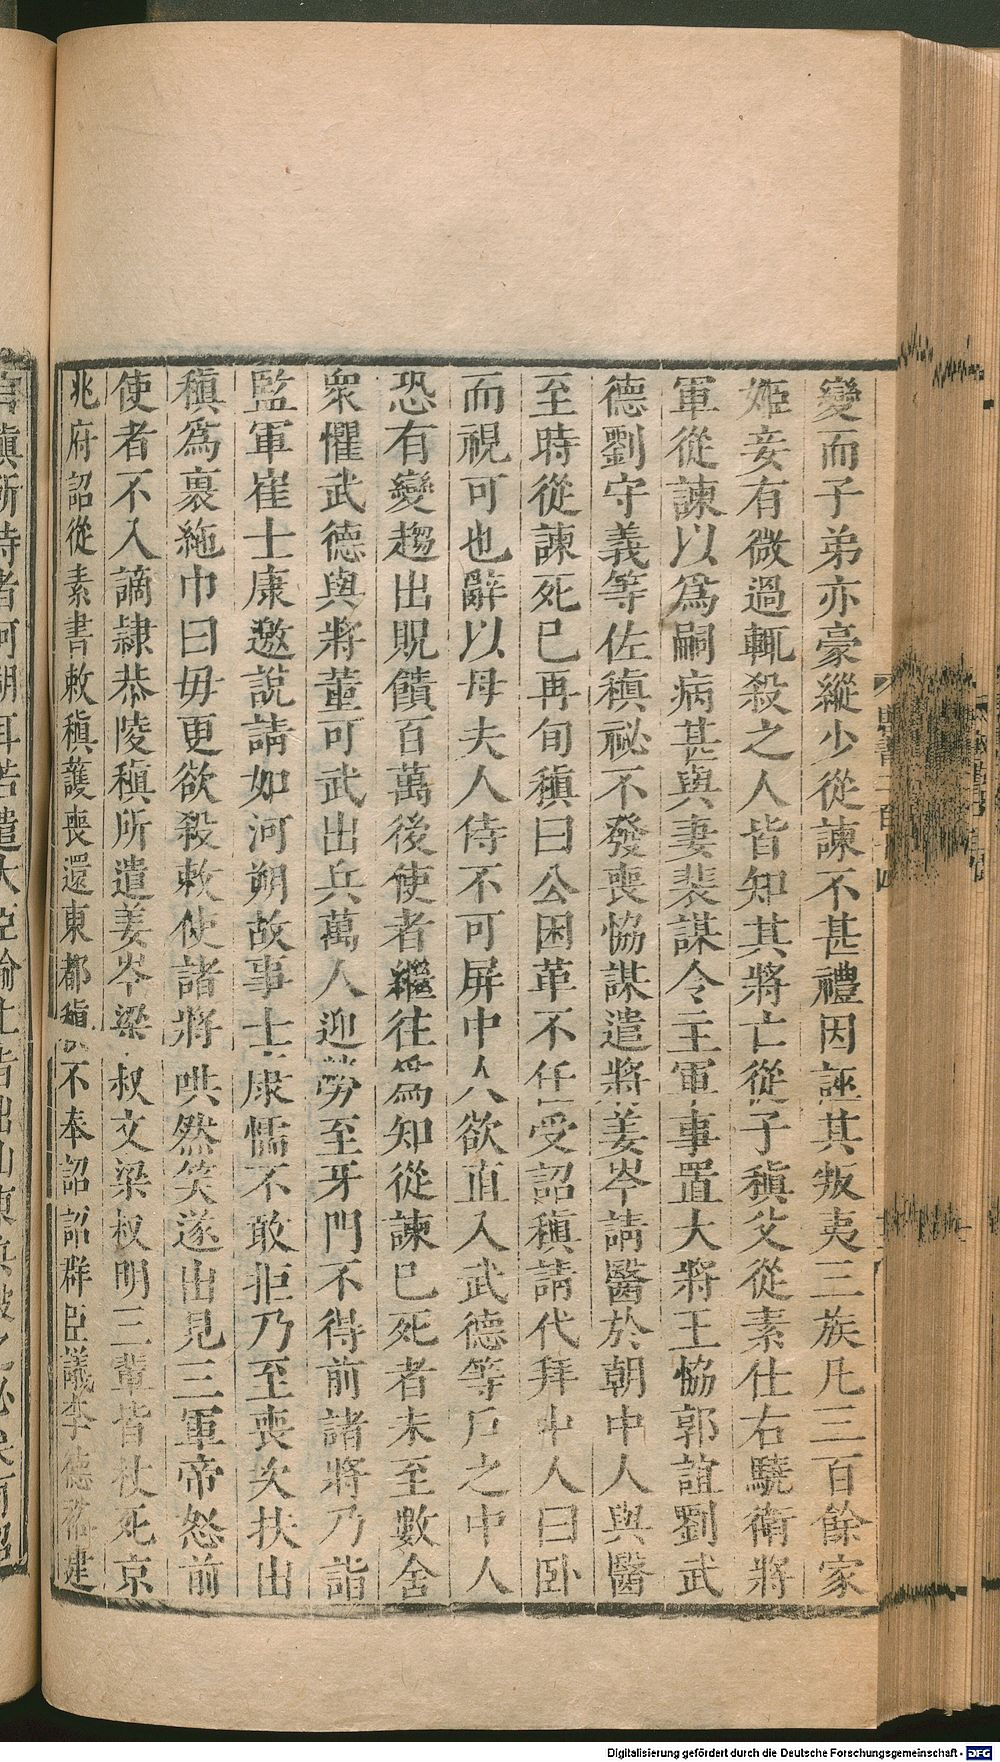 變而子弟亦豪縱少從諫不甚禮因誣其叛夷三族凡三百餘家
姬妾有微過輒殺之人皆知其將亡從子稹父從素仕右驍衛將
軍從諫以爲嗣病甚與妻裴謀令主軍事置大將王協郭誼劉武
德劉守義等佐稹祕不發喪協謀遣將姜岑請醫於朝中人與醫
至時從諫死已再旬稹曰公困革不任受詔稹請代拜中人曰卧
而視可也辭以母夫人侍不可屏中人欲直入武德等戶之中人
恐有變趨出貺饋百萬後使者繼往爲知從諫已死者未至數舍
衆懼武德與將董可武出兵萬人迎勞至牙門不得前諸將乃詣
監軍崔士康邀說請如河朔故事士康懦不敢拒乃至喪次扶出
稹爲裹絁巾曰毋更欲殺敕使諸將哄然笑遂出見三軍帝怒前
使者不入謫隸恭陵稹所遣姜岑梁叔文梁叔明三輩皆杖死京
兆府詔從素書敕稹護喪還東都稹不奉詔詔群臣議李德裕建
Digitalisierung gefördert durch die Deutsche Forschungsgemeinschaft - DFG